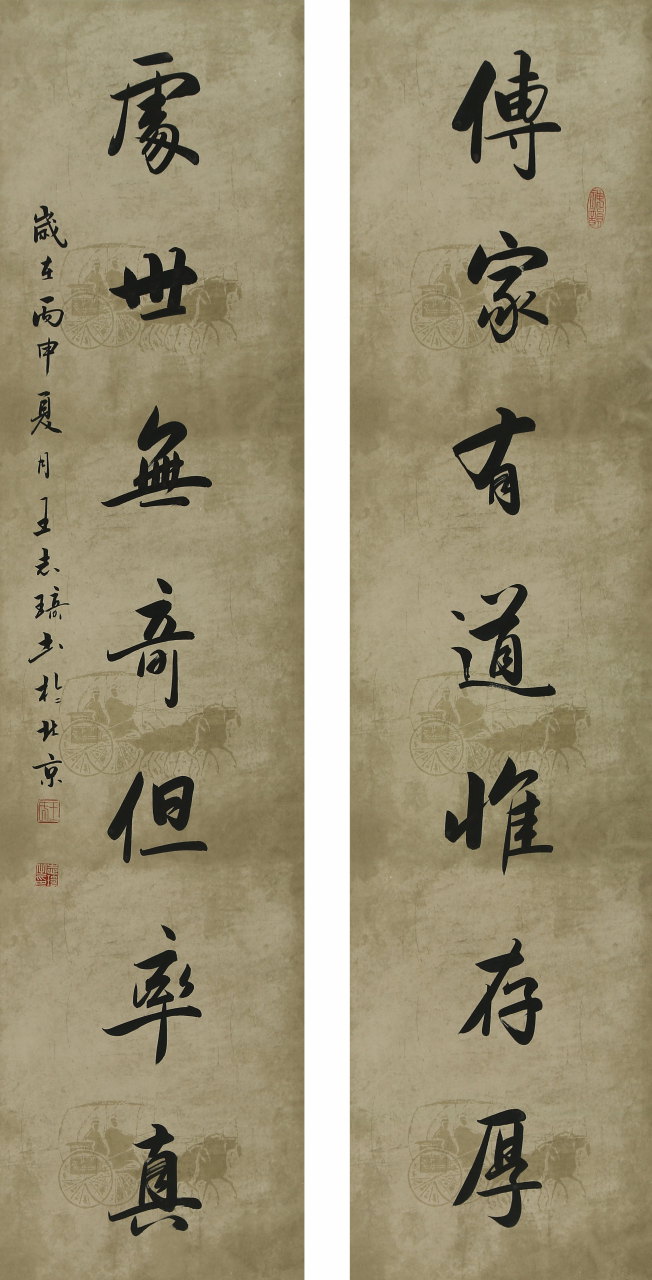 傳家有道惟存厚
處世無奇但率真
歲在丙申夏月王志琦书於北京